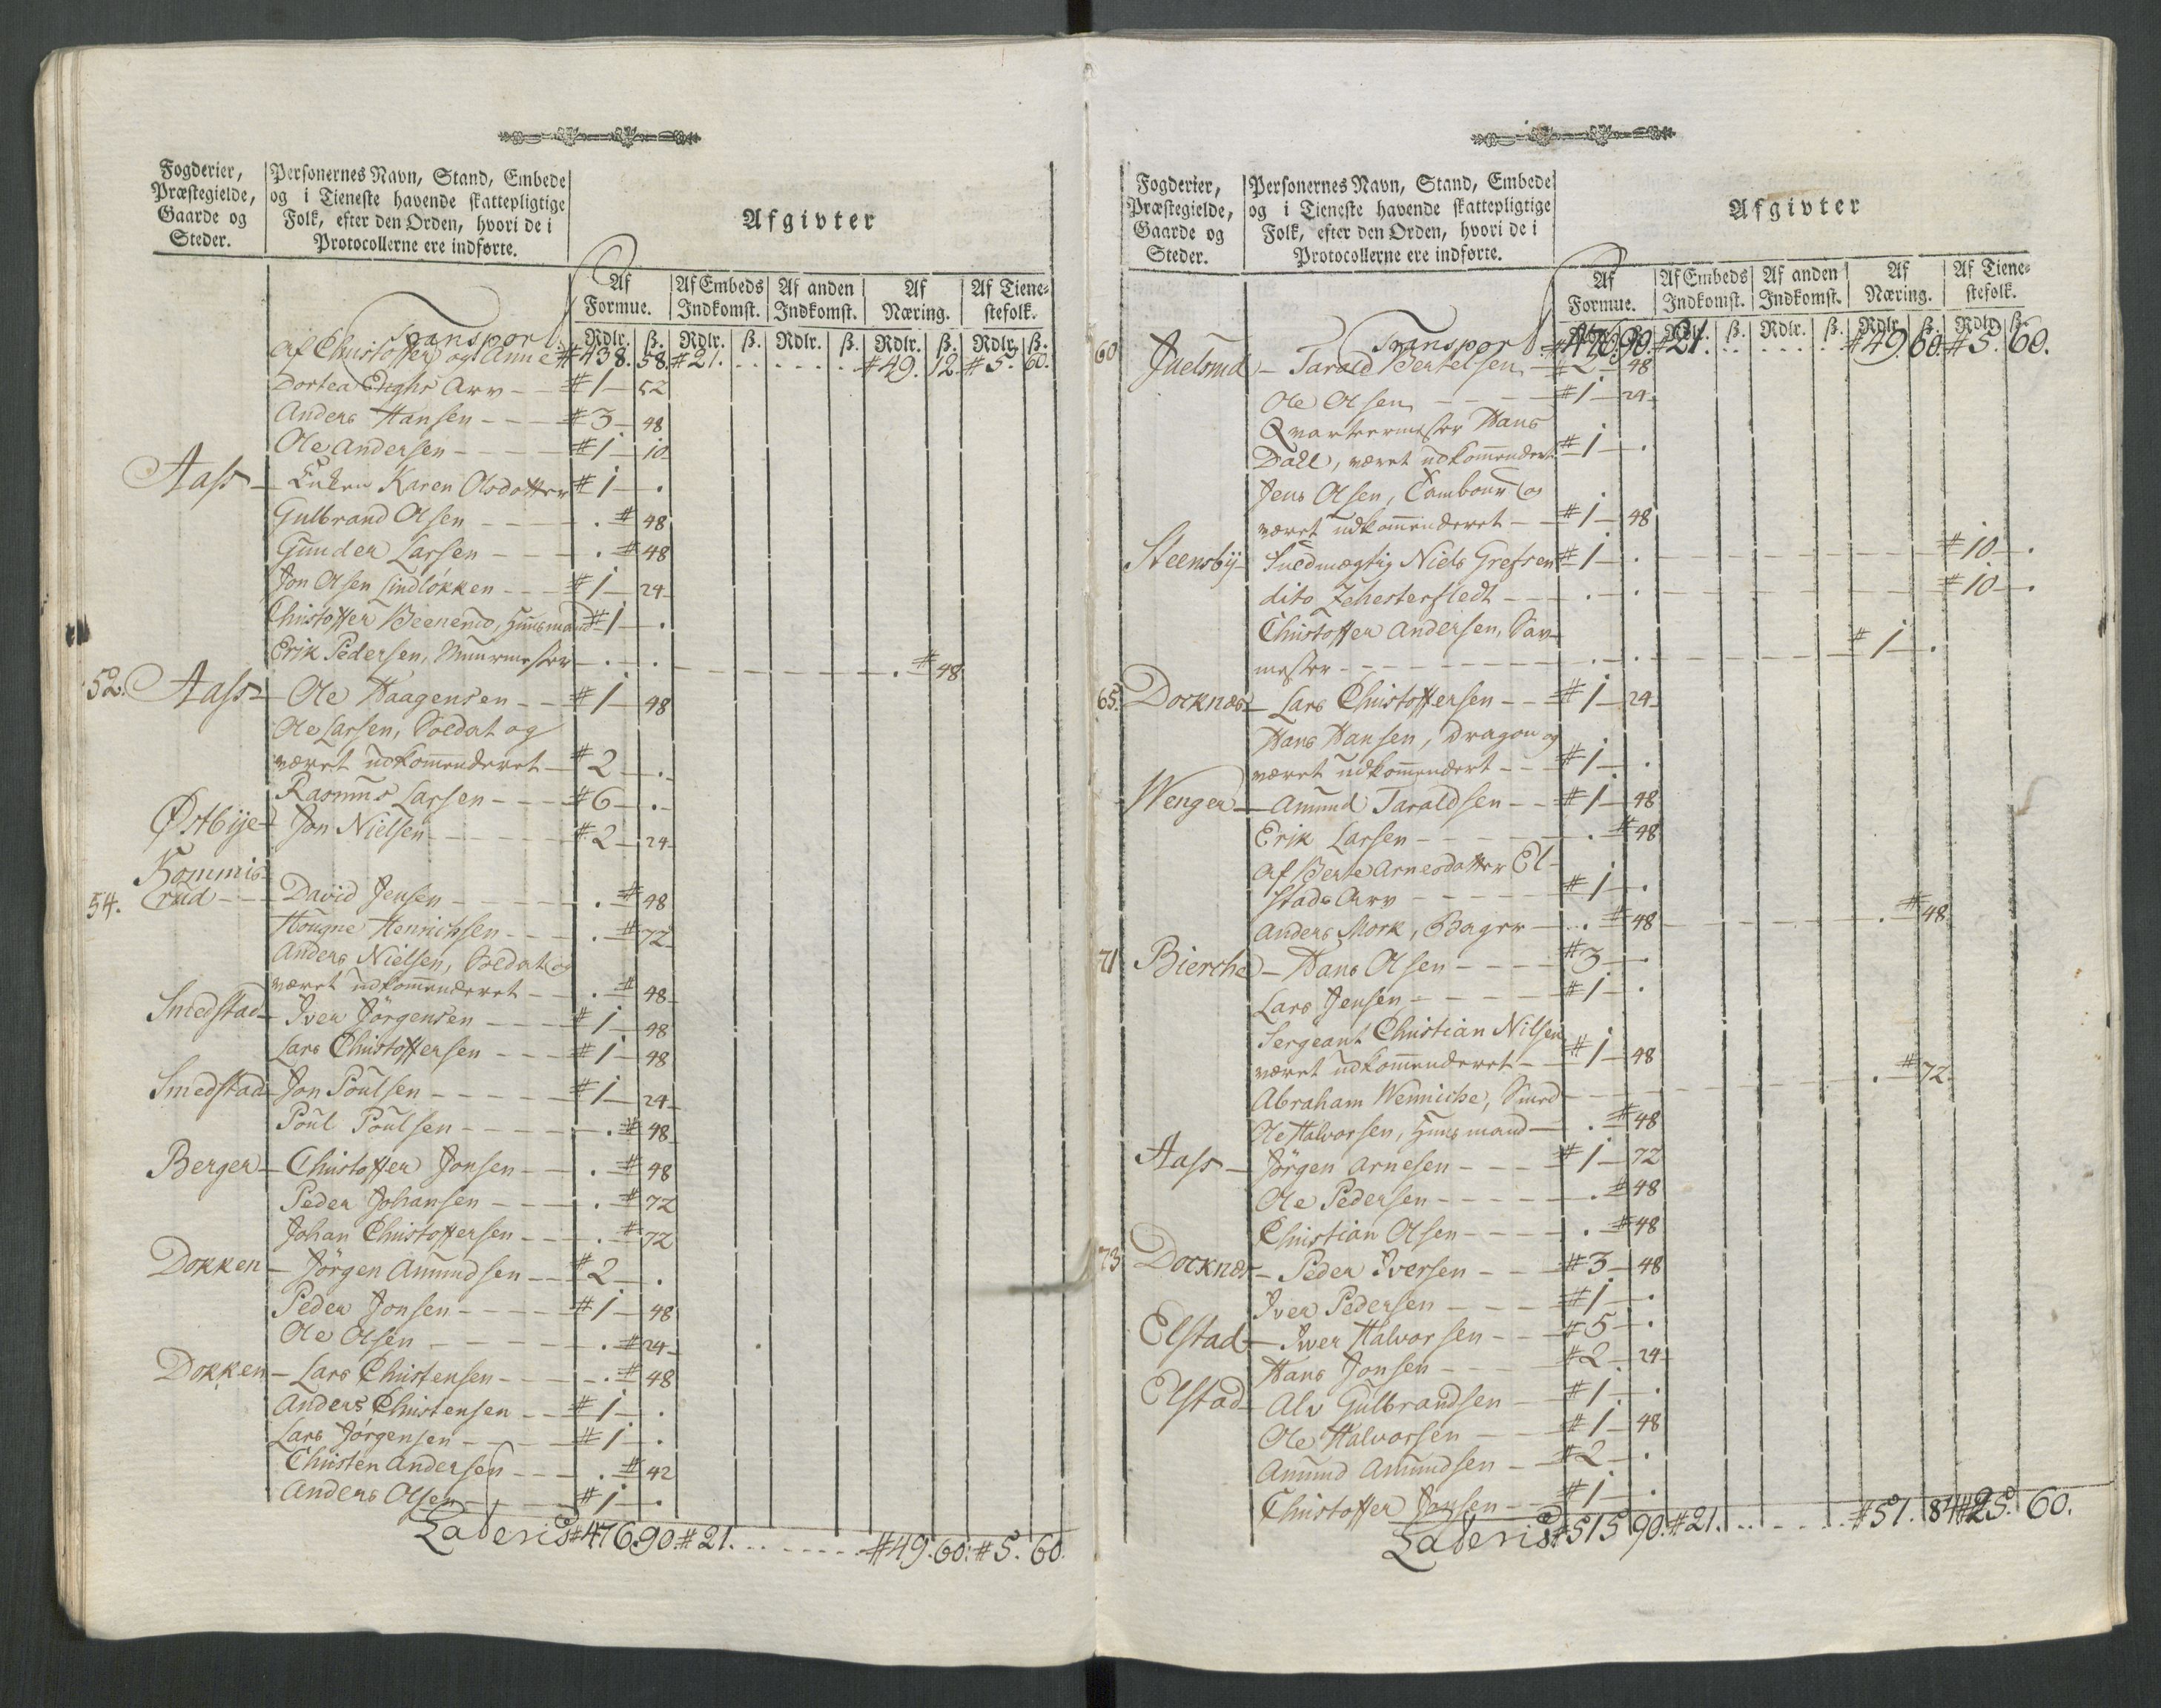 Fogderier,
Præstegielde,
Gaarde og
Steder.
Personernes Navn, Stand, Embede
og i Tieneste havende skattepligtige
Folk, efter den Orden, hvori de i
Protocollerne ere indførte.
Afgivter
Af
Formue.
Af Embeds
Indkomst.
Af anden
Indkomst.
Af
Næring.
Af Tiene-
stefolk.
Rdlr. ß. Rdlr. ß. Rdlr. ß. Rdlr. ß. Rdlr. ß.
Transport #438. 58. #21. . . . . . . #49. 12. #5. 60.
Af Christoffer og Anne
Dortea Enghs Arv - - #1 - 52
Anders Hansen - - - #3 - 48
Ole Andersen - - - - #1 - 10
Aass - Enken Karen Olsdatter #1 - .
Gulbrand Olsen - - - - . # 48
Gunder Larsen - - - . # 48
Jon Olsen Lindløkken - - - #1 - 24
Christoffer Beenendo, Huusmand #1 - .
Erik Pedersen, Muurmester - . - . - - - - - - - . # 48
52. Aass - Ole Haagensen - - #1 - 48
Ole Larsen, Soldat og
været udkommenderet - #2 - .
Rasmus Larsen - - - #6 - .
Østbye - Jon Nielsen - - - - #2 - 24
Kommis-
54. rud - - David Jensen - - - - - . # 48
Hougne Henrichsen - - - - . # 72
Anders Nielsen, Soldat og
været udkommenderet - - . # 48
Smedstad - Iver Jörgensen - - - #1 - 48
Lars Christoffersen - - - #1 - 48
Smedstad - Jon Poulsen - - - - - #1 - 24
Poul Poulsen - - - - - . # 48
Berger - Christoffer Jonsen - - . # 48
Peder Johansen - - - - . # 72
Johan Christoffersen - - - . # 72
Dokken - Jörgen Amundsen - - #2 - .
Peder Jonsen - - - - #1 - 48
Ole Olsen - - - - - . # 24
Dokken - Lars Christensen - - - - . # 48
Anders Christensen - - #1 - .
Lars Jörgensen - - - - #1 - .
Christen Andersen - - - . # 42
Anders Olsen - - - - #1 - .
Lateris #476. 90. #21. . . . . . . #49. 60. #5. 60.
Fogderier,
Præstegielde,
Gaarde og
Steder.
Personernes Navn, Stand, Embede
og i Tieneste havende skattepligtige
Folk, efter den Orden, hvori de i
Protocollerne ere indførte.
Afgivter
Af
Formue.
Af Embeds
Indkomst.
Af anden
Indkomst.
Af
Næring.
Af Tiene-
stefolk.
Rdlr. ß. Rdlr. ß. Rdlr. ß. Rdlr. ß. Rdlr. ß.
Transport #476. 90. #21. . . . . . #49. 60. #5. 60.
60 Juelsrud - Tarald Bertelsen - #2 - 48
Ole Olsen - - - - - #1 - 24
Qvarteermester Hans
Dall, været udkommendert #1 - .
Jens Olsen, Tambour og
været udkommenderet - - #1 - 48
Steensby - Fuldmægtig Niels Grefsen #1 - . - - - - - - - #10 - .
dito Zehesterfledt - - - - . - . - - - - - - - #10 - .
Christoffer Andersen, Sav-
mester - - - - - - - - . - . - - - - - #1 - .
65. Docknes - Lars Christoffersen - - #1 - 24
Hans Hansen, Dragon og
været udkommendert - - - #1 - .
Wenger - Amund Taraldsen - - #1 - 48
Erik Larsen - - - - - . # 48
Af Berte Arnesdatter El-
stads Arv - - - - - #1 - .
Anders Mork, Bager - - . # 48 - - - - - . # 48.
71 Bierche - Hans Olsen - - - - #3 - .
Lars Jensen - - - - - #1 - .
Sergeant Christian Nilsen
været udkommenderet - - #1 - 48
Abraham Wenniche, Smed - - - - - - - . # 72.
Ole Halvorsen, Huusmand - . # 48
Aass - Jörgen Arnesen - - - #1 - 72
Ole Pedersen - - - - - . # 48
Christian Olsen - - - - . # 48
73 Docknes - Peder Iversen - - #3 - 48
Iver Pedersen - - - #1 - .
Elstad - Iver Halvorsen - - #5 - .
Hans Jonsen - - - #2 - 24
Elstad - Alv Gulbrandsen - #1 - .
Ole Halvorsen - - #1 - 48
Amund Amundsen - #2 - .
Christoffer Jonsen - - #1 - .
Lateris #515 90. #21. . . . . . . #51. 84 #25. 60.